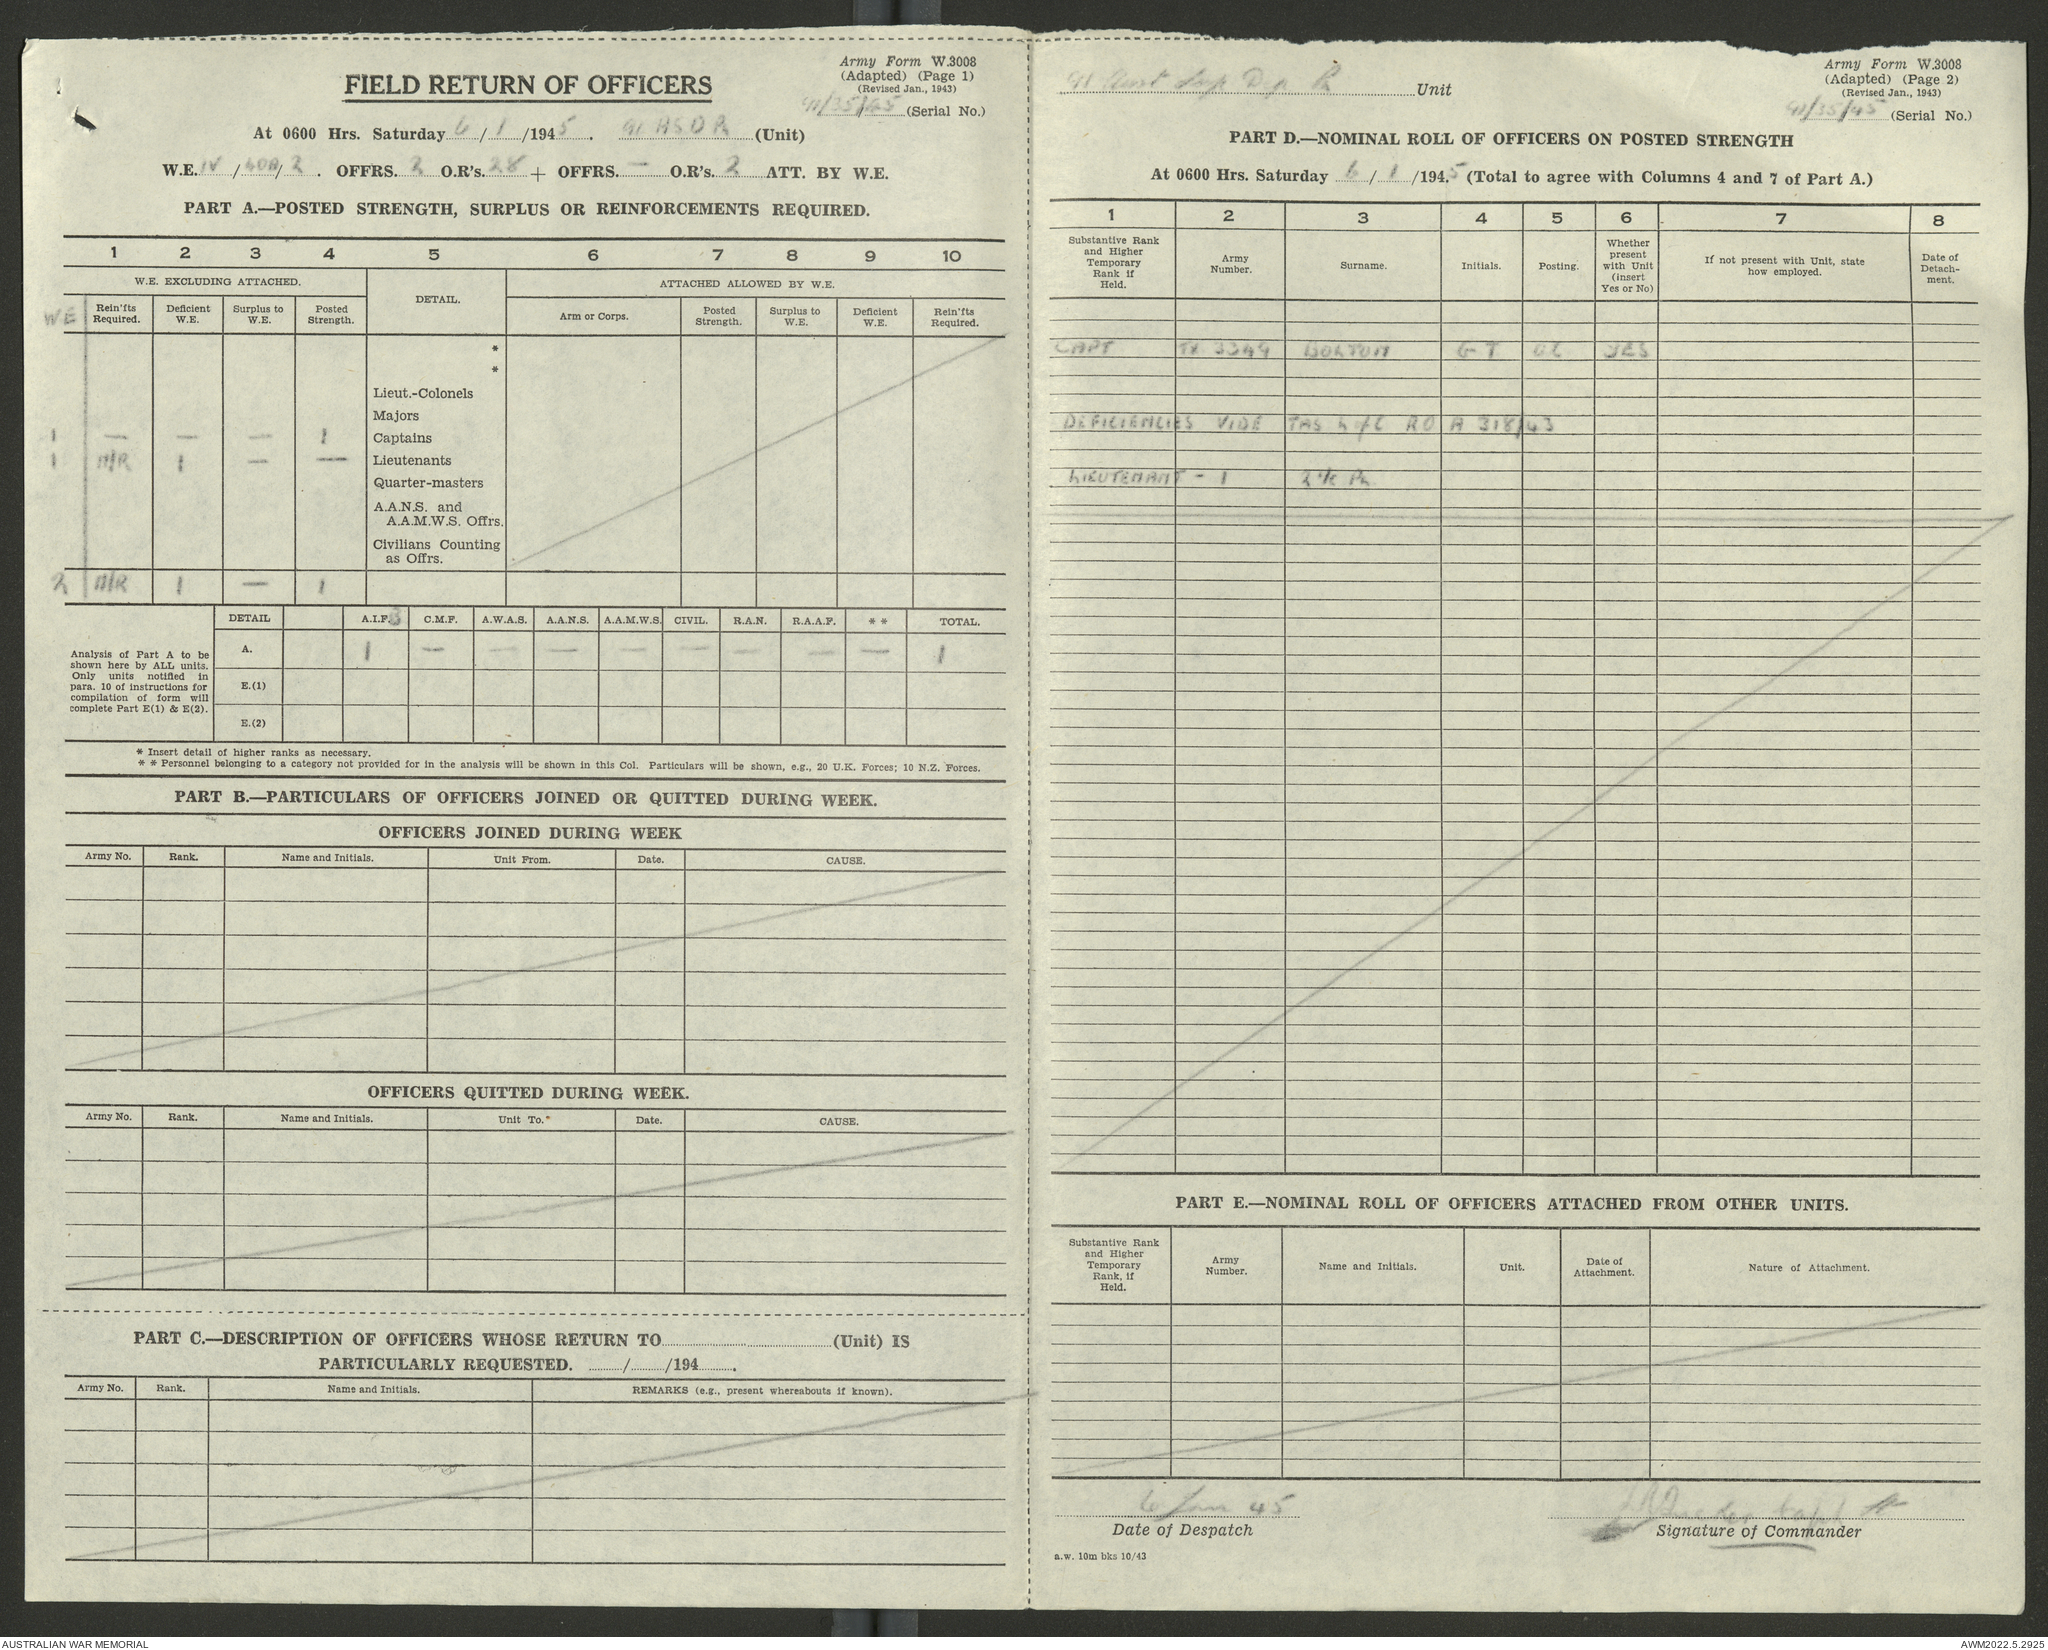 Army Form W.3008
(Adapted) (Page 1)
(Revised Jan., 1943)
FIELD RETURN OF OFFICERS
91/35/45 (Serial No.)
At 0600 Hrs. Saturday 6/1/1945. 91 ASD Pl (Unit)
W.E. IV/40A/2. OFFRS. 2 O.R's. 28 + OFFRS. — O.R's. 2 ATT. BY W.E.
PART A.—POSTED STRENGTH, SURPLUS OR REINFORCEMENTS REQUIRED.
1 2 3 4 5 6 7 8 9 10
W.E. EXCLUDING ATTACHED. DETAIL. ATTACHED ALLOWED BY W.E.
WE Rein'fts Required. Deficient W.E. Surplus to W.E. Posted Strength. Arm or Corps. Posted Strength. Surplus to W.E. Deficient W.E. Rein'fts Required.
*
*
Lieut.-Colonels
Majors
1 — — — 1 Captains
1 N/R 1 — — Lieutenants
Quarter-masters
A.A.N.S. and
A.A.M.W.S. Offrs.
Civilians Counting
as Offrs.
2 N/R 1 — 1
DETAIL A.I.F. C.M.F. A.W.A.S. A.A.N.S. A.A.M.W.S. CIVIL. R.A.N. R.A.A.F. * * TOTAL.
Analysis of Part A to be
shown here by ALL units.
Only units notified in
para. 10 of instructions for
compilation of form will
complete Part E(1) & E(2).
A. 1 — — — — — — — — 1
E.(1)
E.(2)
* Insert detail of higher ranks as necessary.
* * Personnel belonging to a category not provided for in the analysis will be shown in this Col. Particulars will be shown, e.g., 20 U.K. Forces; 10 N.Z. Forces.
PART B.—PARTICULARS OF OFFICERS JOINED OR QUITTED DURING WEEK.
OFFICERS JOINED DURING WEEK
Army No. Rank. Name and Initials. Unit From. Date. CAUSE.
OFFICERS QUITTED DURING WEEK.
Army No. Rank. Name and Initials. Unit To. Date. CAUSE.
PART C.—DESCRIPTION OF OFFICERS WHOSE RETURN TO (Unit) IS
PARTICULARLY REQUESTED. / /194 .
Army No. Rank. Name and Initials. REMARKS (e.g., present whereabouts if known).
Army Form W.3008
(Adapted) (Page 2)
(Revised Jan., 1943)
91 Aust Sup Dep Pl Unit
91/35/45 (Serial No.)
PART D.—NOMINAL ROLL OF OFFICERS ON POSTED STRENGTH
At 0600 Hrs. Saturday 6/1/1945 (Total to agree with Columns 4 and 7 of Part A.)
1 2 3 4 5 6 7 8
Substantive Rank and Higher Temporary Rank if Held. Army Number. Surname. Initials. Posting. Whether present with Unit (insert Yes or No) If not present with Unit, state how employed. Date of Detachment.
CAPT TX 3349 BOLTON G T OC YES
DEFICIENCIES VIDE TAS L of C RO A 318/43
LIEUTENANT - 1 2 i/c Pl
PART E.—NOMINAL ROLL OF OFFICERS ATTACHED FROM OTHER UNITS.
Substantive Rank and Higher Temporary Rank, if Held. Army Number. Name and Initials. Unit. Date of Attachment. Nature of Attachment.
6 Jan 45
Capt
Date of Despatch
Signature of Commander
a.w. 10m bks 10/43
AUSTRALIAN WAR MEMORIAL
AWM2022.5.2925